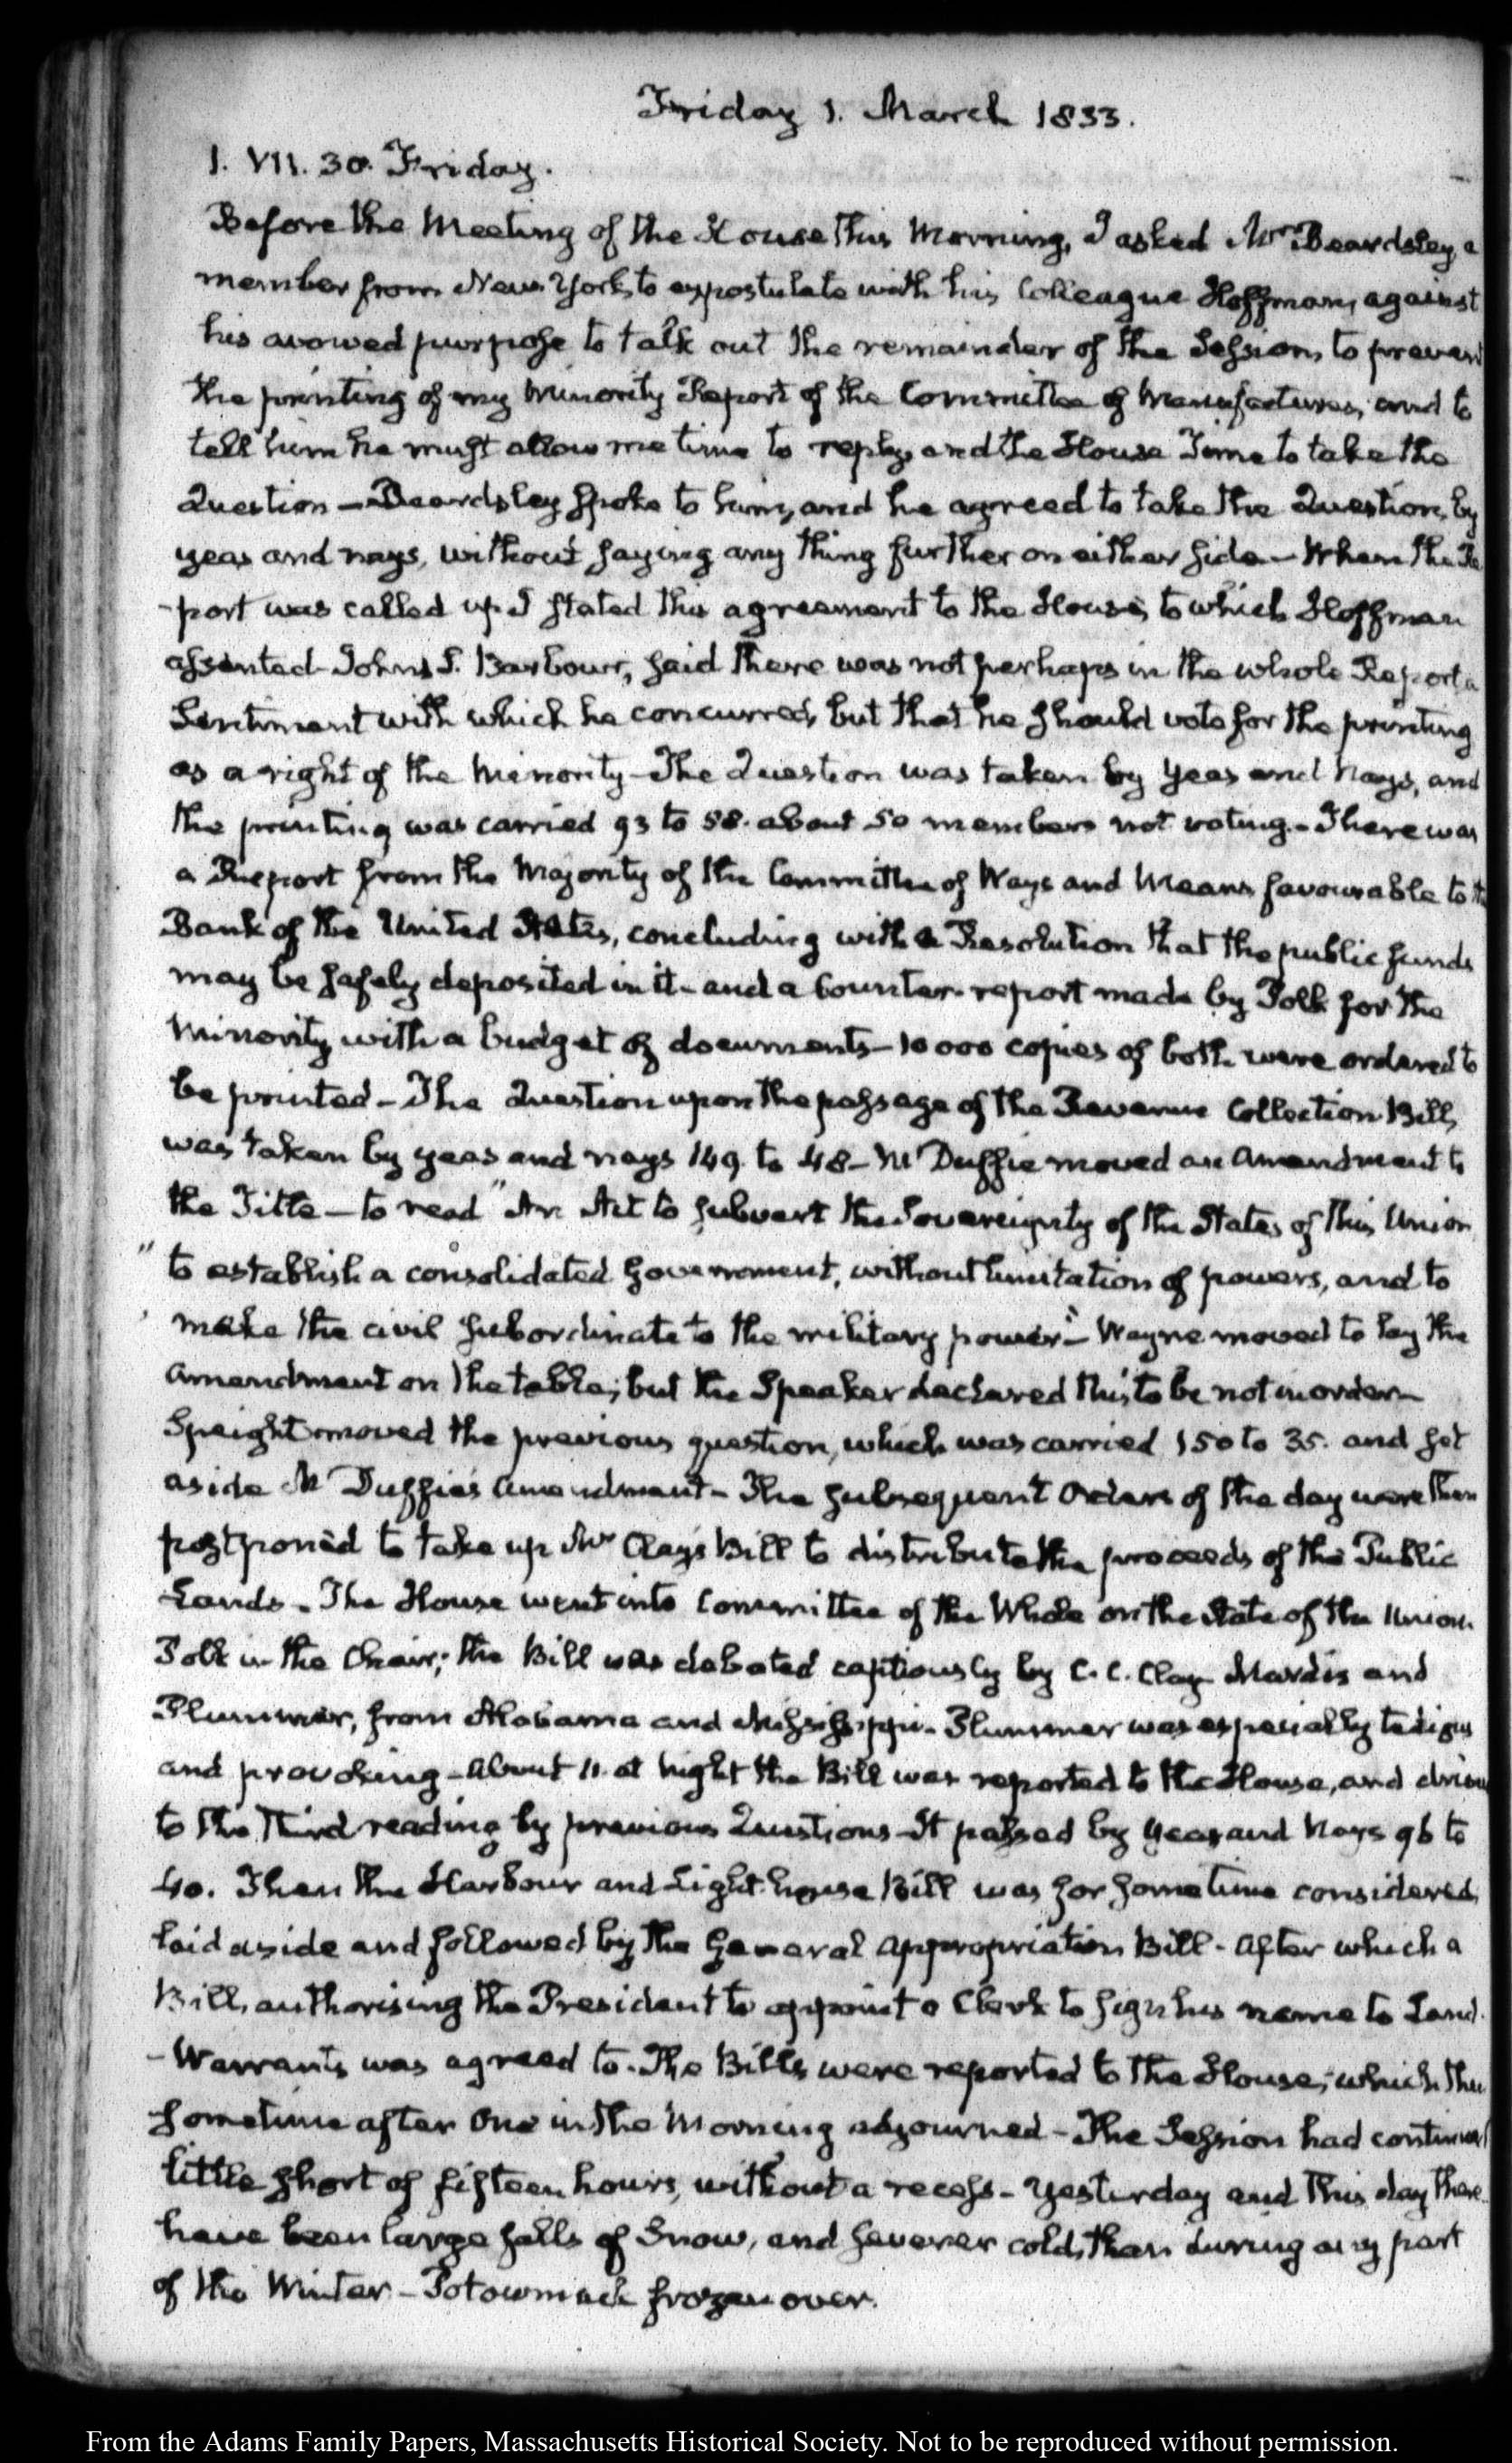 Friday 1. March 1833.
1. VII. 30. Friday.
Before the Meeting of the House this Morning, I asked Mr Beardsley, a
member from New-York, to expostulate with his Colleague Hoffman, against
his avowed purpose to talk out the remainder of the Session, to prevent
the printing of my Minority Report of the Committee of Manufactures; and to
tell him he must allow me time to reply, and the House Time to take the
Question — Beardsley spoke to him, and he agreed to take the Question, by
yeas and nays, without saying any thing further on either side — When the Re
-port was called up I stated this agreement to the House, to which Hoffman
assented — John S. Barbour, said there was not perhaps in the whole Report a
Sentiment with which he concurred, but that he should vote for the printing
as a right of the Minority — The Question was taken by Yeas and Nays, and
the printing was carried 93 to 58. about 50 members not voting. — There was
a Report from the Majority of the Committee of Ways and Means favourable to the
Bank of the United States, concluding with a Resolution that the public funds
may be safely deposited in it — and a Counter-report made by Polk for the
Minority with a budget of documents — 10000 copies of both were ordered to
be printed — The Question upon the passage of the Revenue Collection Bill,
was taken by yeas and nays 149. to 48 — McDuffie moved an Amendment to
the Title — to read "An Act to subvert the Sovereignty of the States of this Union
" to establish a consolidated Government, without limitation of powers, and to
' make the civil subordinate to the military power" — Wayne moved to lay the
Amendment on the table; but the Speaker declared this to be not in order —
Speight moved the previous question, which was carried 150 to 35. and set
aside McDuffie's Amendment — The subsequent Orders of the day were then
postponed to take up Mr Clay's Bill to distribute the proceeds of the Public
Lands. The House went into Committee of the Whole on the State of the Union.
Polk in the Chair; the Bill was debated captiously by C. C. Clay Mardis and
Plummer, from Alabama and Mississippi. Plummer was especially tedious
and provoking — About 11. at Night the Bill was reported to the House, and driven
to the Third reading by previous Questions — It passed by Yeas and Nays 96 to
40. Then the Harbour and Light-house Bill was for some time considered,
laid aside and followed by the General Appropriation Bill — After which a
Bill, authorising the President to appoint a Clerk to sign his name to Land
-Warrants was agreed to. The Bills were reported to the House; which then
sometime after One in the Morning adjourned — The Session had continued
little short of fifteen hours, without a recess — Yesterday and this day there
have been large falls of Snow, and severer cold, than during any part
of the Winter — Potowmack frozen over.
From the Adams Family Papers, Massachusetts Historical Society. Not to be reproduced without permission.